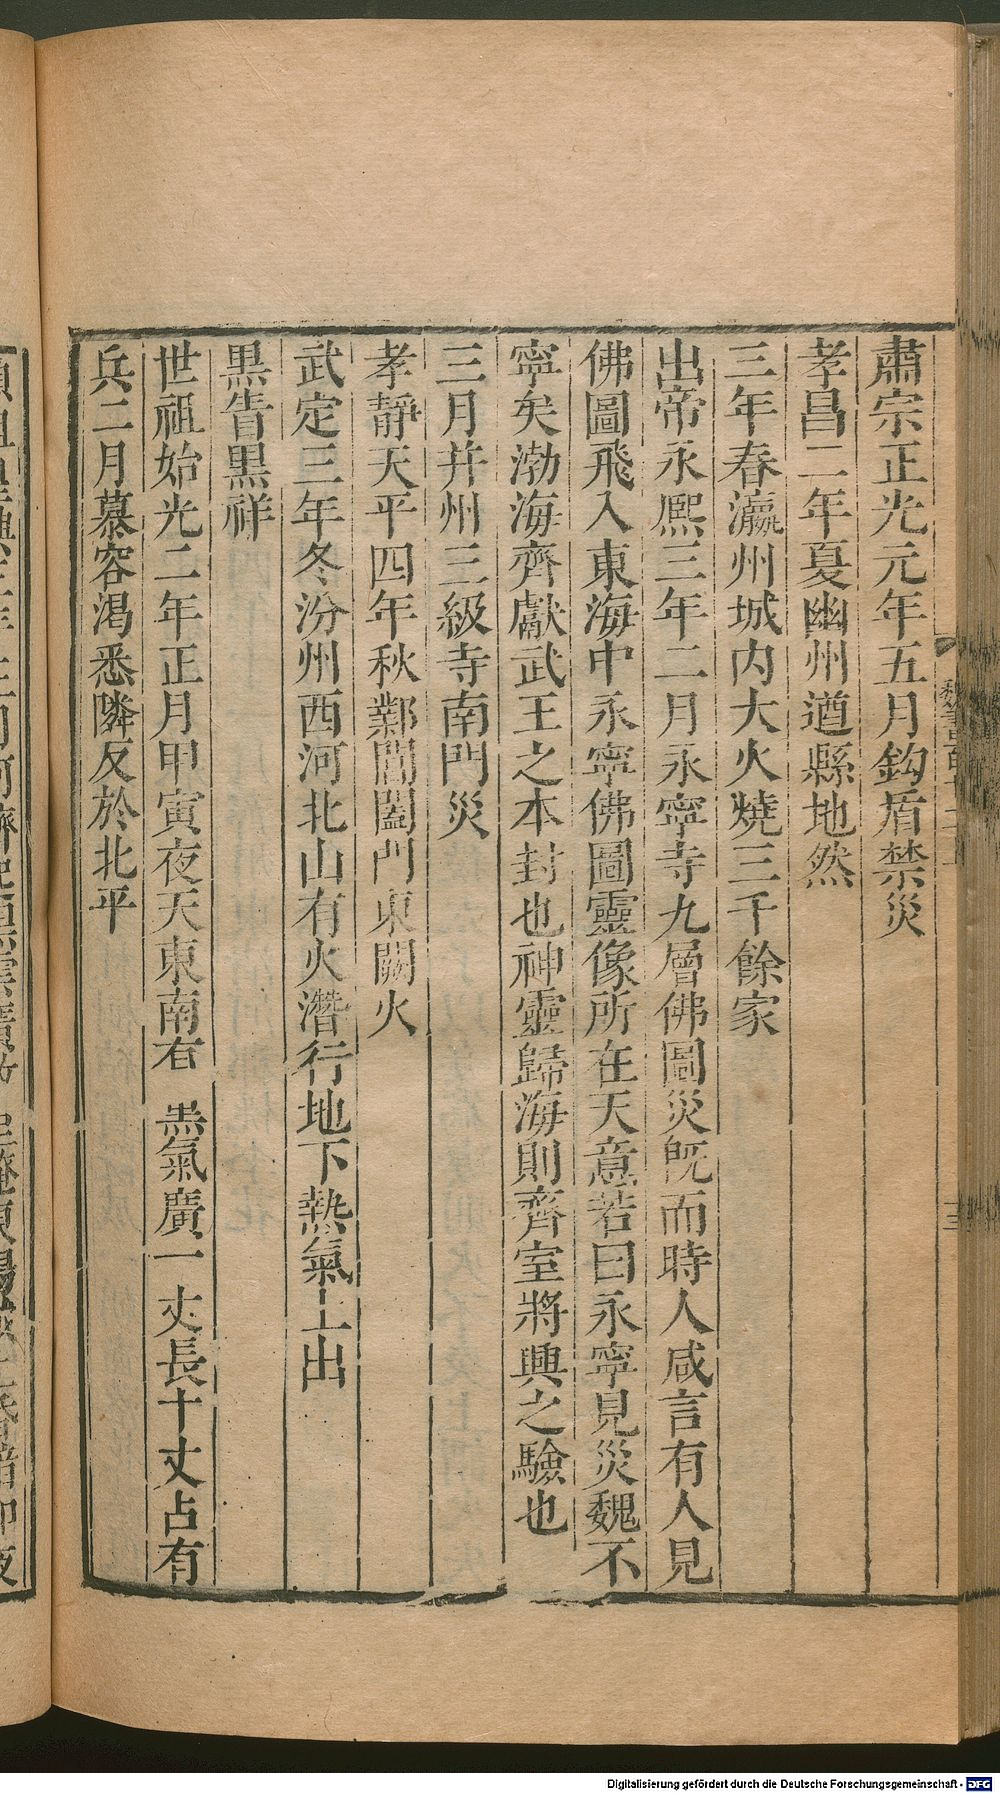 肅宗正光元年五月鉤盾禁災
孝昌二年夏幽州遒縣地然
三年春瀛州城内大火燒三千餘家
出帝永熈三年二月永寧寺九層佛圖災旣而時人咸言有人見
佛圖飛入東海中永寧佛圖靈像所在天意若曰永寧見災魏不
寧矣渤海齊獻武王之本封也神靈歸海則齊室將興之驗也
三月幷州三級寺南門災
孝靜天平四年秋鄴閶闔門東闕火
武定三年冬汾州西河北山有火潛行地下熱氣上出
黒眚黒祥
世祖始光二年正月甲寅夜天東南有黒氣廣一丈長十丈占有
兵二月慕容渴悉隣反於北平
Digitalisierung gefördert durch die Deutsche Forschungsgemeinschaft - DFG